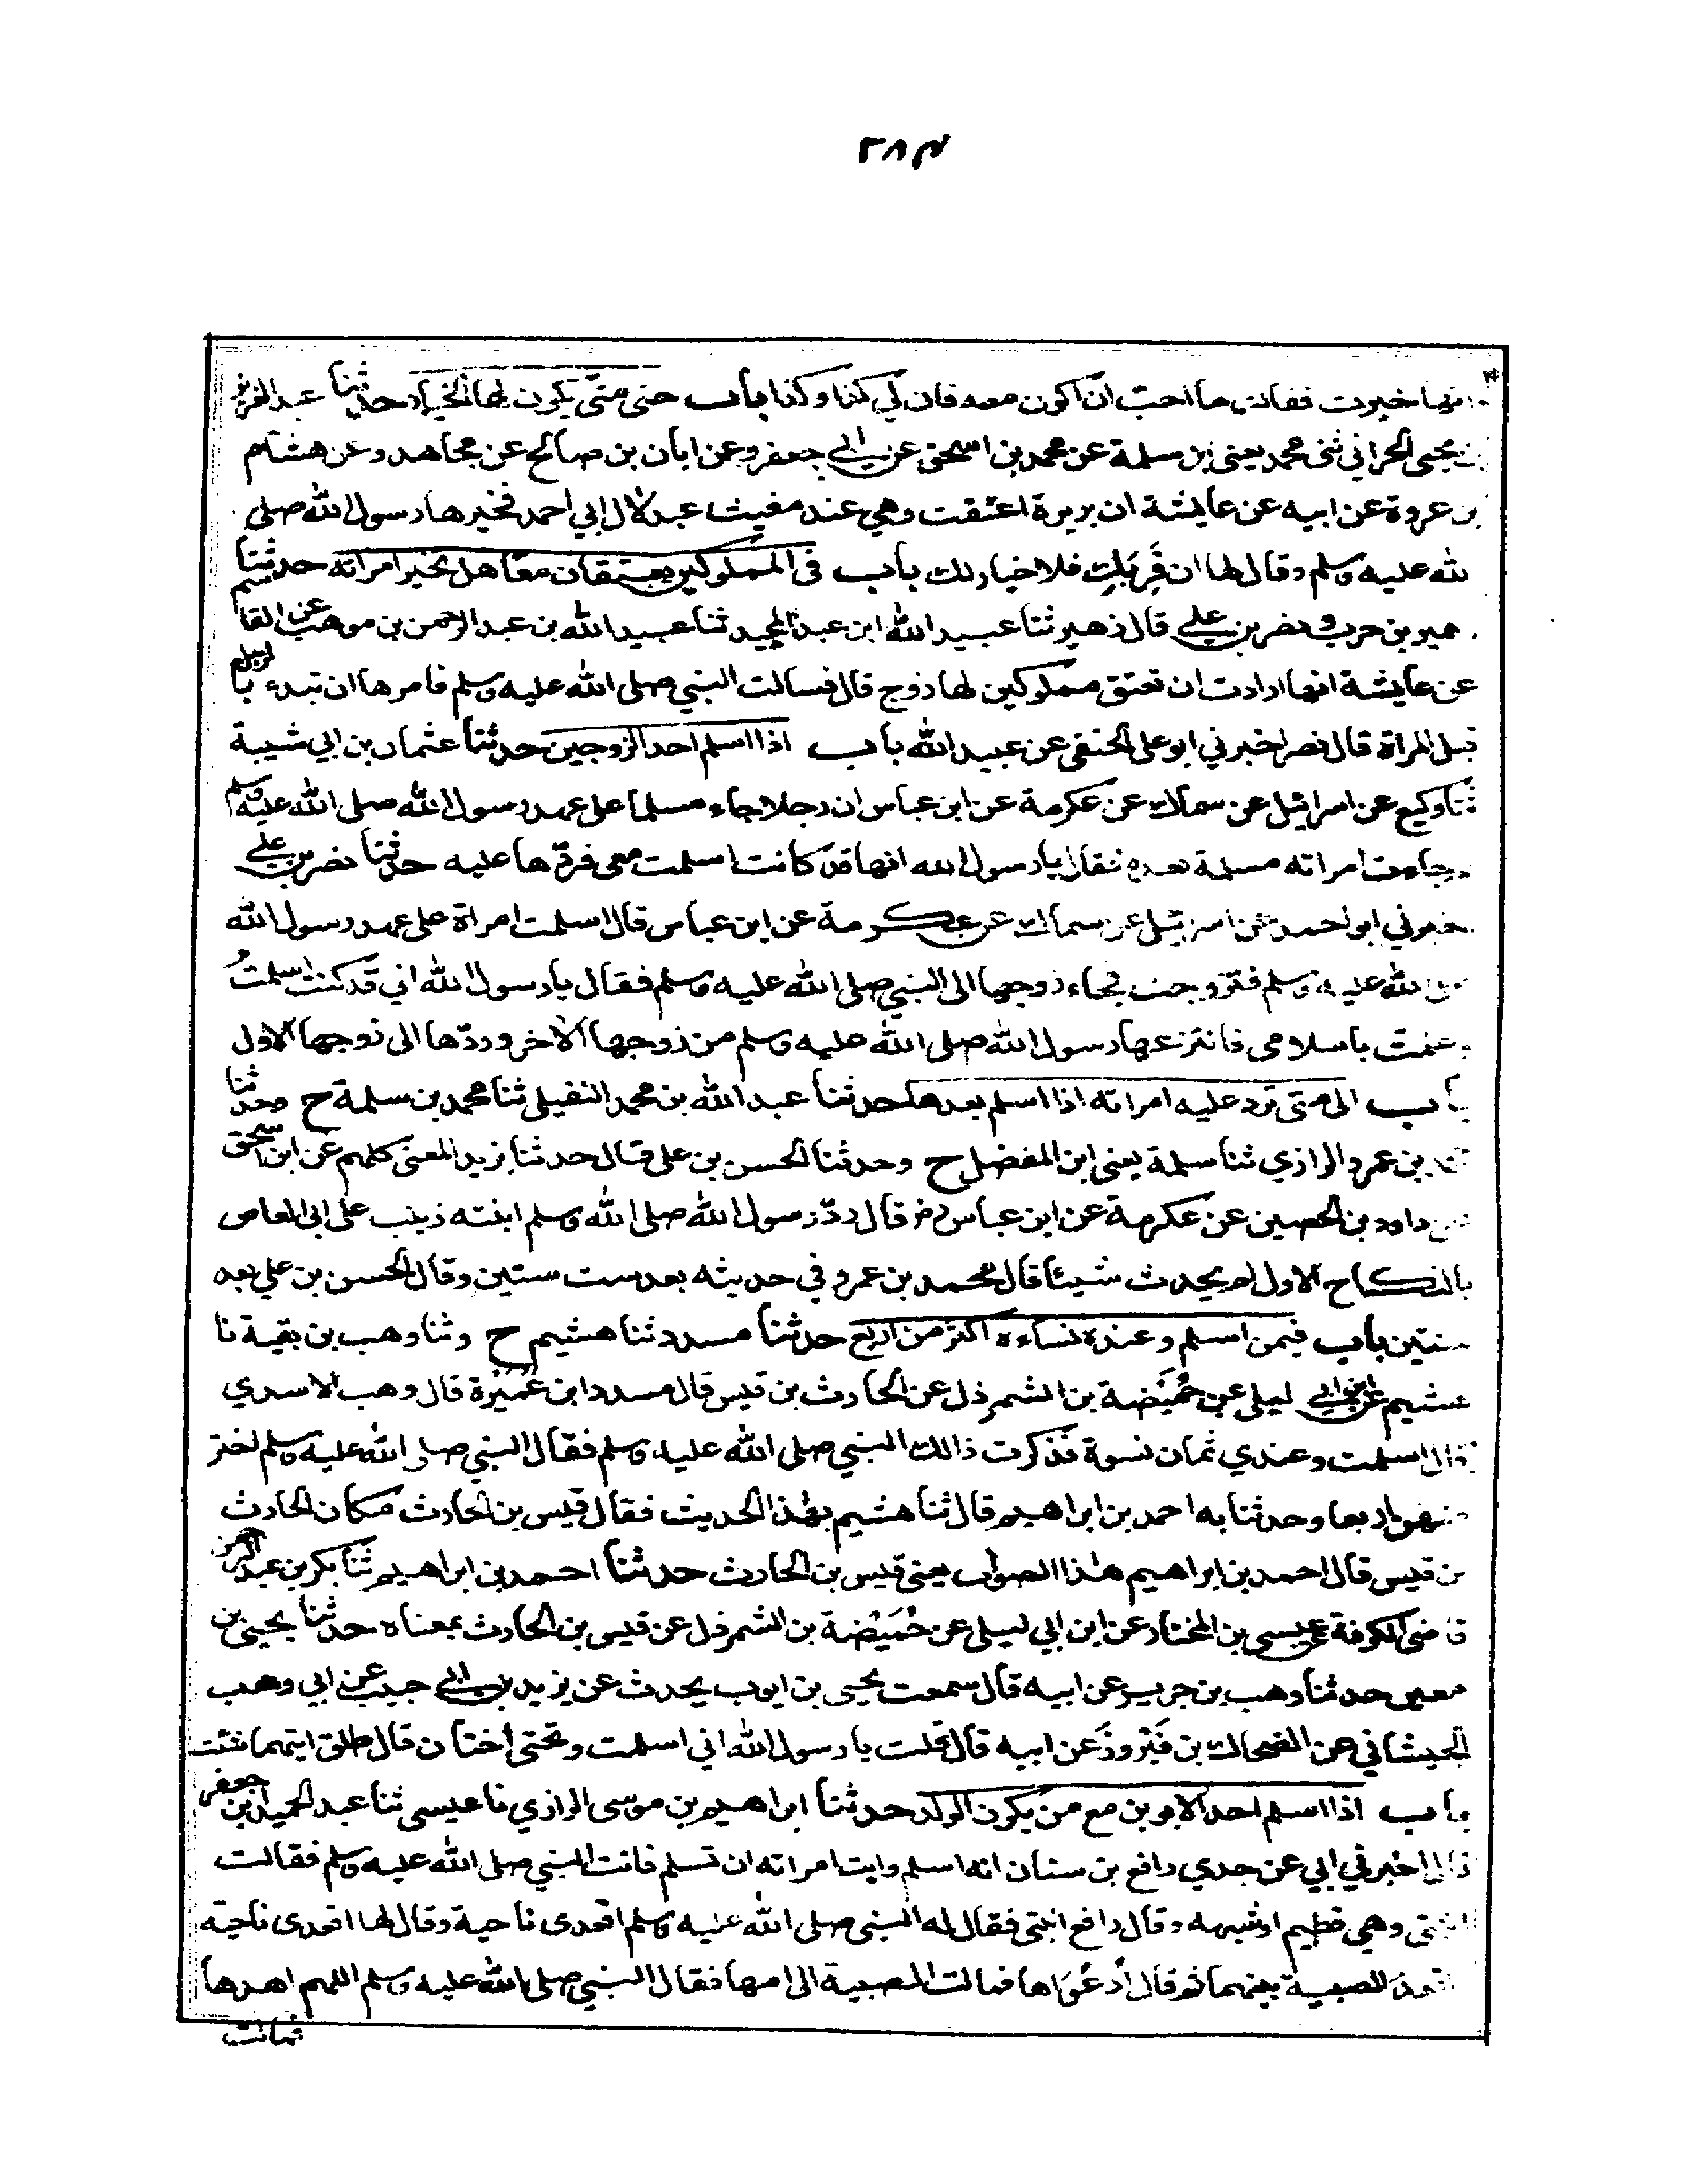 ٢٨٣
انها خيرت فقالت ما احب ان اكون معه فان لي كذا وكذا باب حتى متى يكون لها الخيار حدثنا عبد العزيز
بن يحيى الحراني ثنى محمد يعنى ابن سلمة عن محمد بن اسحق عن ابي جعفر وعن ابان بن صالح عن مجاهد وعن هشام
بن عروة عن ابيه عن عايشة ان بريرة اعتقت وهي عند مغيث عبد لال ابي احمد فخيرها رسول الله صلى
الله عليه وسلم وقال لها ان قَرِبَكِ فلا خيار لك باب في المملوكين يعتقان معا هل تخير امراته حدثنا
زهير بن حرب ونصر بن علي قال زهير ثنا عبيد الله ابن عبد المجيد ثنا عبيد الله بن عبد الرحمن بن موهب عن القاسم
عن عايشة انها ارادت ان تعتق مملوكين لها زوج قال فسالت النبي صلى الله عليه وسلم فامرها ان تبدء بالرجل
قبل المراة قال نصر اخبرني ابو على الحنفي عن عبيد الله باب اذا اسلم احد الزوجين حدثنا عثمان بن ابي شيبة
ثنا وكيع عن اسرائيل عن سماك عن عكرمة عن ابن عباس ان رجلا جاء مسلما على عهد رسول الله صلى الله عليه وسلم
وجاءت امراته مسلمة بعده فقال يا رسول الله انها قد كانت اسلمت معى فردّها عليه حدثنا نصر بن علي
اخبرني ابو احمد عن اسرائيل عن سماك عن عكرمة عن ابن عباس قال اسلمت امراة على عهد رسول الله
صلى الله عليه وسلم فتزوجت فجاء زوجها الى النبي صلى الله عليه وسلم فقال يا رسول الله اني قد كنت اسلمتُ
وعلمت باسلامى فانتزعها رسول الله صلى الله عليه وسلم من زوجها الاخر وردّها الى زوجها الاول
باب الى متى ترد عليه امراته اذا اسلم بعدها حدثنا عبد الله بن محمد النفيلى ثنا محمد بن سلمة ح وحدثنا
محمد بن عمرو الرازي ثنا سلمة يعنى ابن المفضل ح وحدثنا الحسن بن على قال حدثنا يزيد المعنى كلهم عن ابن اسحق
عن داود بن الحصين عن عكرمة عن ابن عباس رض قال ردّ رسول الله صلى الله وسلم ابنته زينب على ابى العاص
بالنكاح الاول لم يحدث شيئا قال محمد بن عمرو في حديثه بعد ست سنين وقال الحسن بن علي بعد
سنتين باب فيمن اسلم وعنده نساءه اكثر من اربع حدثنا مسدد ثنا هشيم ح وثنا وهب بن بقية نا
هشيم عن ابن ابي ليلى عن حُمَيْضة بن الشمرذل عن الحارث بن قيس قال مسدد ابن عُمَيْرة قال وهب الاسدي
قال اسلمت وعندي ثمان نسوة فذكرت ذالك النبي صلى الله عليه وسلم فقال النبي صلى الله عليه وسلم اختر
منهن اربعا وحدثنا به احمد بن ابراهيم قال ثنا هشيم بهذا الحديث فقال قيس بن الحارث مكان الحارث
بن قيس قال احمد بن ابراهيم هذا الصواب يعنى قيس بن الحارث حدثنا احمد بن ابراهيم ثنا بكر بن عبد الرحمن
قاضى الكوفة عن عيسى بن المختار عن ابن ابي ليلى عن حُمَيْضة بن الشمرذل عن قيس بن الحارث بمعناه حدثنا يحيى بن
معين حدثنا وهب بن جرير عن ابيه قال سمعت يحيى بن ايوب يحدث عن يزيد بن ابي حبيب عن ابي وهب
الجيشاني عن الضحاك بن فَيْروزَ عن ابيه قال قلت يا رسول الله اني اسلمت وتحتى اختان قال طلق ايتهما شئت
باب اذا اسلم احد الابوين مع من يكون الولد حدثنا ابراهيم بن موسى الرازي نا عيسى ثنا عبد الحميد ابن جعفر
قال اخبرني ابي عن جدي رافع بن سنان انه اسلم وابت امراته ان تسلم فاتت النبي صلى الله عليه وسلم فقالت
ابنتى وهي فطيم او شبهه وقال رافع ابنتى فقال له النبي صلى الله عليه وسلم اقعدى ناحية وقال لها اقعدى ناحية
واقعد الصبية بينهما ثم قال اُدعُوَاها فمالت الصبية الى امها فقال النبي صلى الله عليه وسلم اللهم اهدها
فمالت